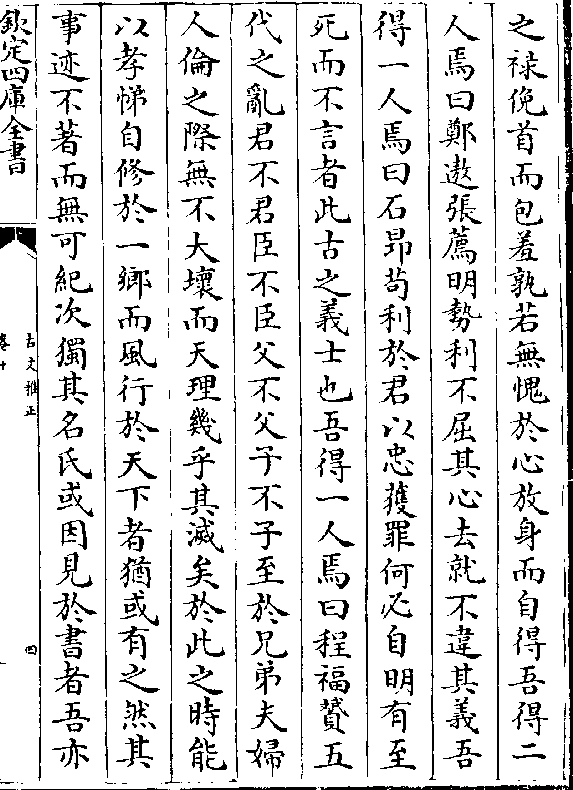 之祿俛首而包羞孰若無愧於心放身而自得吾得二
人焉曰鄭遨張薦明勢利不屈其心去就不違其義吾
得一人焉曰石昻苟利於君以忠獲罪何必自明有至
死而不言者此古之義士也吾得一人焉曰程福贇五
代之亂君不君臣不臣父不父子不子至於兄弟夫婦
人倫之際無不大壞而天理幾乎其滅矣於此之時能
以孝悌自修於一鄉而風行於天下者猶或有之然其
事迹不著而無可紀次獨其名氏或因見於書者吾亦
欽定四庫全書
古文雅正
卷十
四